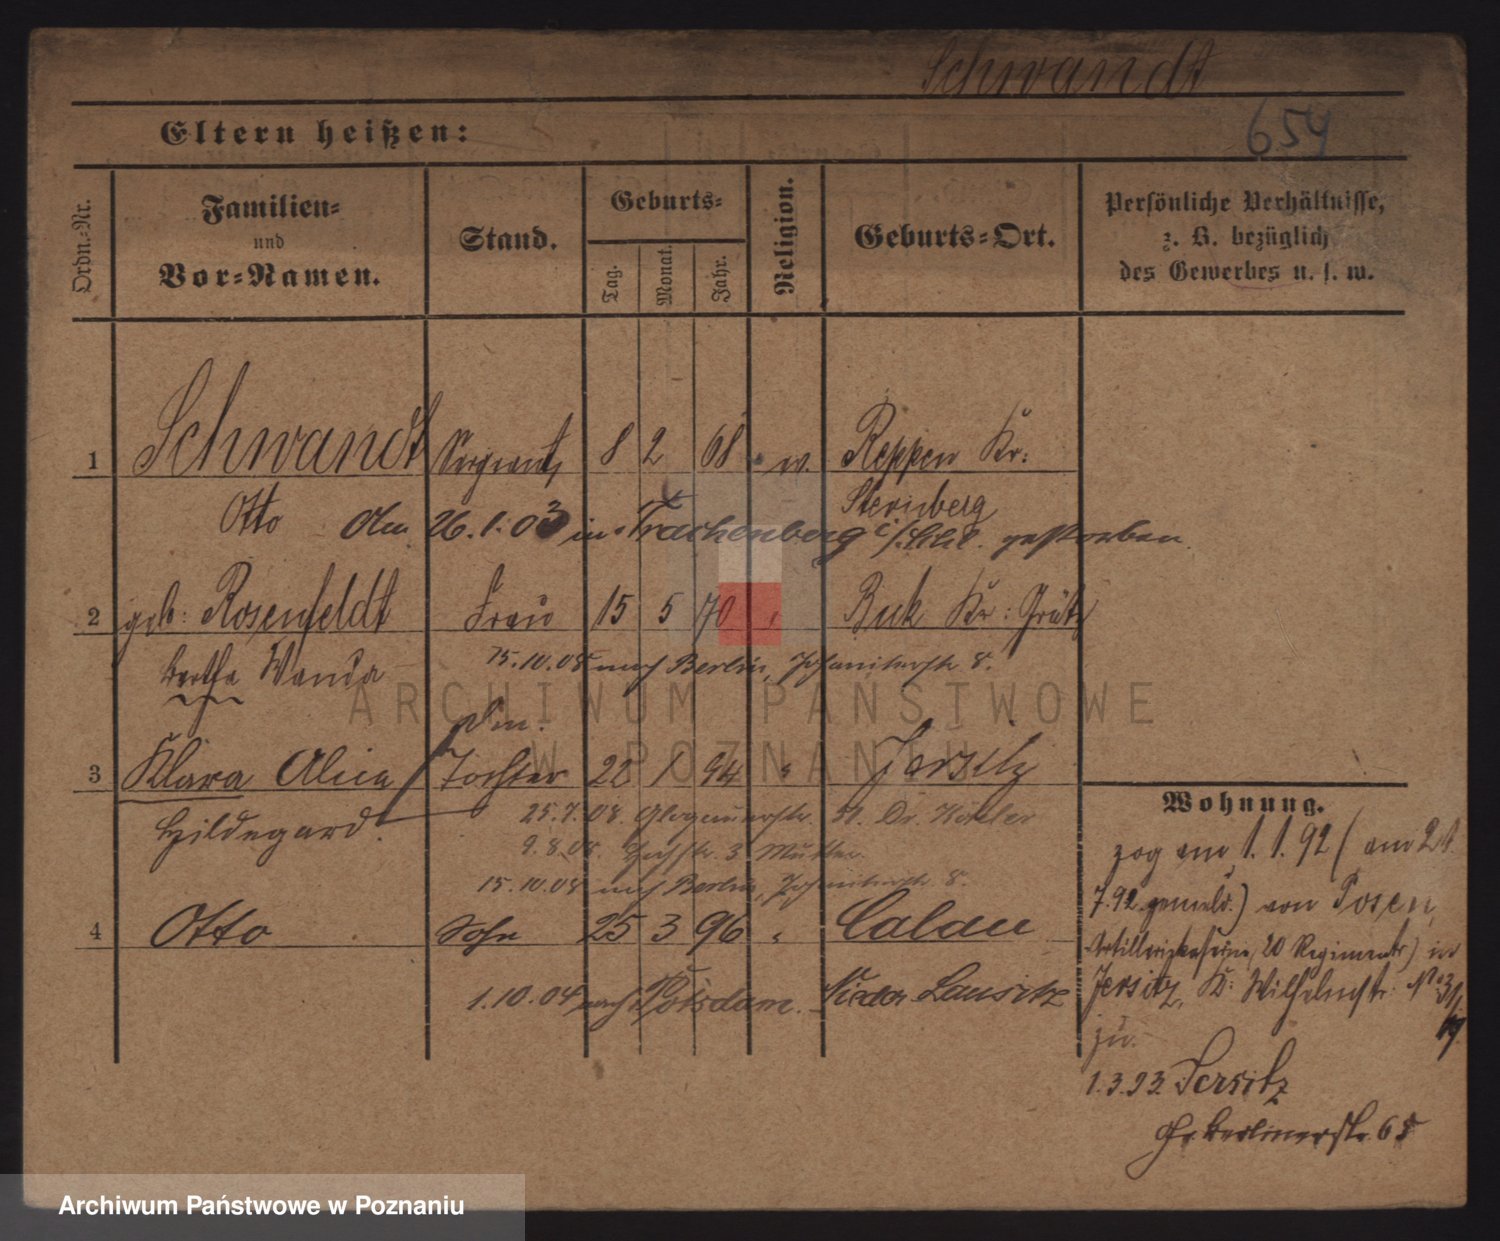 Schwandt
654
Eltern heißen:
Ordn.-Nr.
Familien-
und
Vor-Namen.
Stand.
Geburts-
Tag.
Monat.
Jahr.
Religion.
Geburts-Ort.
Persönliche Verhältnisse,
z. B. bezüglich
des Gewerbes u. s. w.
1 Schwandt Sergeant, 8 2 68 Reppen Kr:
Sternberg
Otto 26.1.03 in Trachenberg i/Schl. gestorben.
2 geb: Rosenfeldt Frau 15 5 70 " Buk Kr: Grätz
Bertha Wanda
15.10.08 nach Berlin, Johanniterstr 8.
3 Klara Alice Tochter 22 1 94 " Jersitz
Hildegard.
25.7.08. Glogauerstr. Dr. Köhler
9.8.08. 3 Mutter.
15.10.08 nach Berlin, Johanniterstr 8.
4 Otto Sohn 25 3 96 " Calau
1.10.04 nach Potsdam. Nieder Lausitz
Wohnung.
zog am 1.1.92 (am 2t.
7.92. gemeld.) von Posen,
Artilleriekaserne, 20 Regiments) in
Jersitz, K: Wilhelmstr. No 31/
zu.
1.3.93. Jersitz
Gr. Berlinerstr. 65
ARCHIWUM PAŃSTWOWE
W POZNANIU
Archiwum Państwowe w Poznaniu